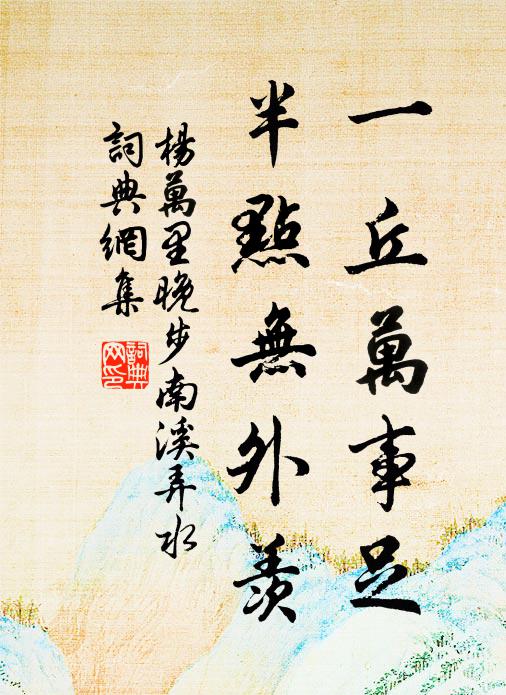 一丘萬事足
半點無外羨
楊萬里晚步南溪弄水
詞典網集
詞典
网印